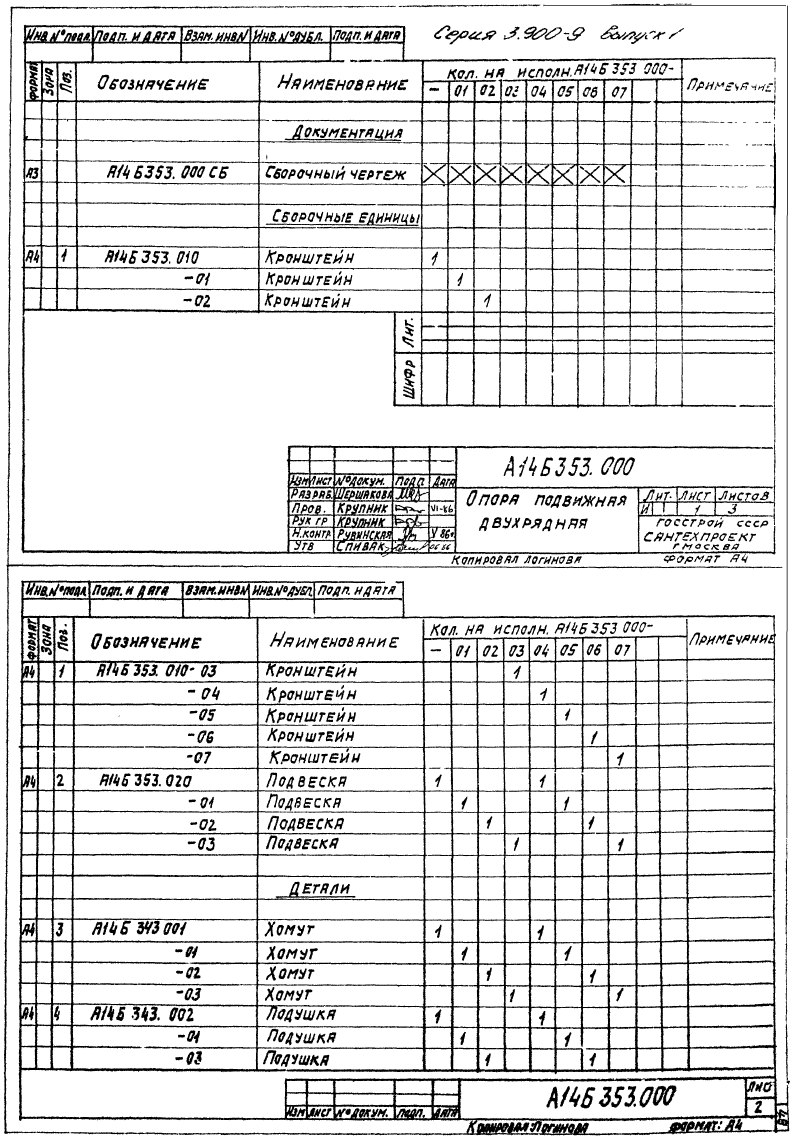 Инв.№подл. Подп. и дата Взам.инв№ Инв.№дубл. Подп. и дата Серия 3.900-9 Выпуск 1
Формат Зона Поз. Обозначение Наименование Кол. на исполн. А14Б353 000- Примечание
– 01 02 03 04 05 06 07
Документация
А3 А14Б353.000 СБ Сборочный чертеж X X X X X X X X
Сборочные единицы
А4 1 А14Б353.010 Кронштейн 1
-01 Кронштейн 1
-02 Кронштейн 1
Лит.
Шифр
А14Б353.000
Изм Лист №докум. Подп. Дата
Разраб. Шершакова
Пров. Крупник VI-86
Рук гр Крупник
Н.контр. Рувинская V 86г.
Утв Спивак 06 86
Опора подвижная двухрядная
Лит. Лист Листов
И 1 3
Госстрой СССР
Сантехпроект
г Москва
Копировал Логинова Формат А4
Инв.№подл. Подп. и дата Взам.инв№ Инв.№дубл. Подп. и дата
Формат Зона Поз. Обозначение Наименование Кол. на исполн. А14Б353 000- Примечание
– 01 02 03 04 05 06 07
А4 1 А14Б353.010-03 Кронштейн 1
-04 Кронштейн 1
-05 Кронштейн 1
-06 Кронштейн 1
-07 Кронштейн 1
А4 2 А14Б353.020 Подвеска 1 1
-01 Подвеска 1 1
-02 Подвеска 1 1
-03 Подвеска 1 1
Детали
А4 3 А14Б 343 001 Хомут 1 1
-01 Хомут 1 1
-02 Хомут 1 1
-03 Хомут 1 1
А4 4 А14Б 343.002 Подушка 1 1
-01 Подушка 1 1
-03 Подушка 1 1
Изм Лист №докум. Подп. Дата А14Б353.000
2
Копировал Логинова Формат: А4